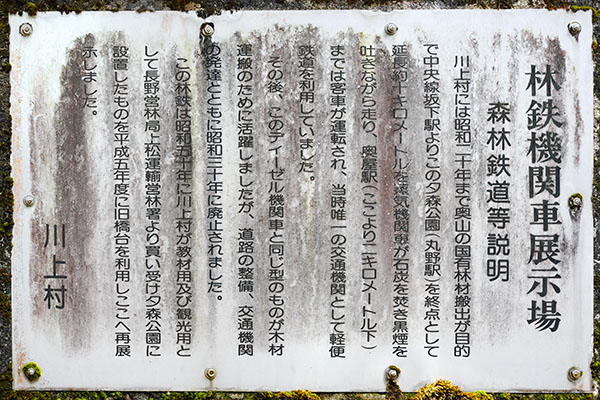 林鉄機関車展示場
森林鉄道等説明
川上村には昭和二十年まで奥山の国有林材搬出が目的
で中央線坂下駅よりこの夕森公園(丸野駅)を終点として
延長約十キロメートルを蒸気機関車が石炭を焚き黒煙を
吐きながら走り、奥屋駅(ここより二キロメートル下)
までは客車が運転され、当時唯一の交通機関として軽便
鉄道を利用していました。
その後、このディーゼル機関車と同じ型のものが木材
運搬のために活躍しましたが、道路の整備、交通機関
の発達とともに昭和三十年に廃止されました。
この林鉄は昭和五十年に川上村が教材用及び観光用と
して長野営林局上松運輸営林署より買い受け夕森公園に
設置したものを平成五年度に旧橋台を利用しここへ再展
示しました。
川上村